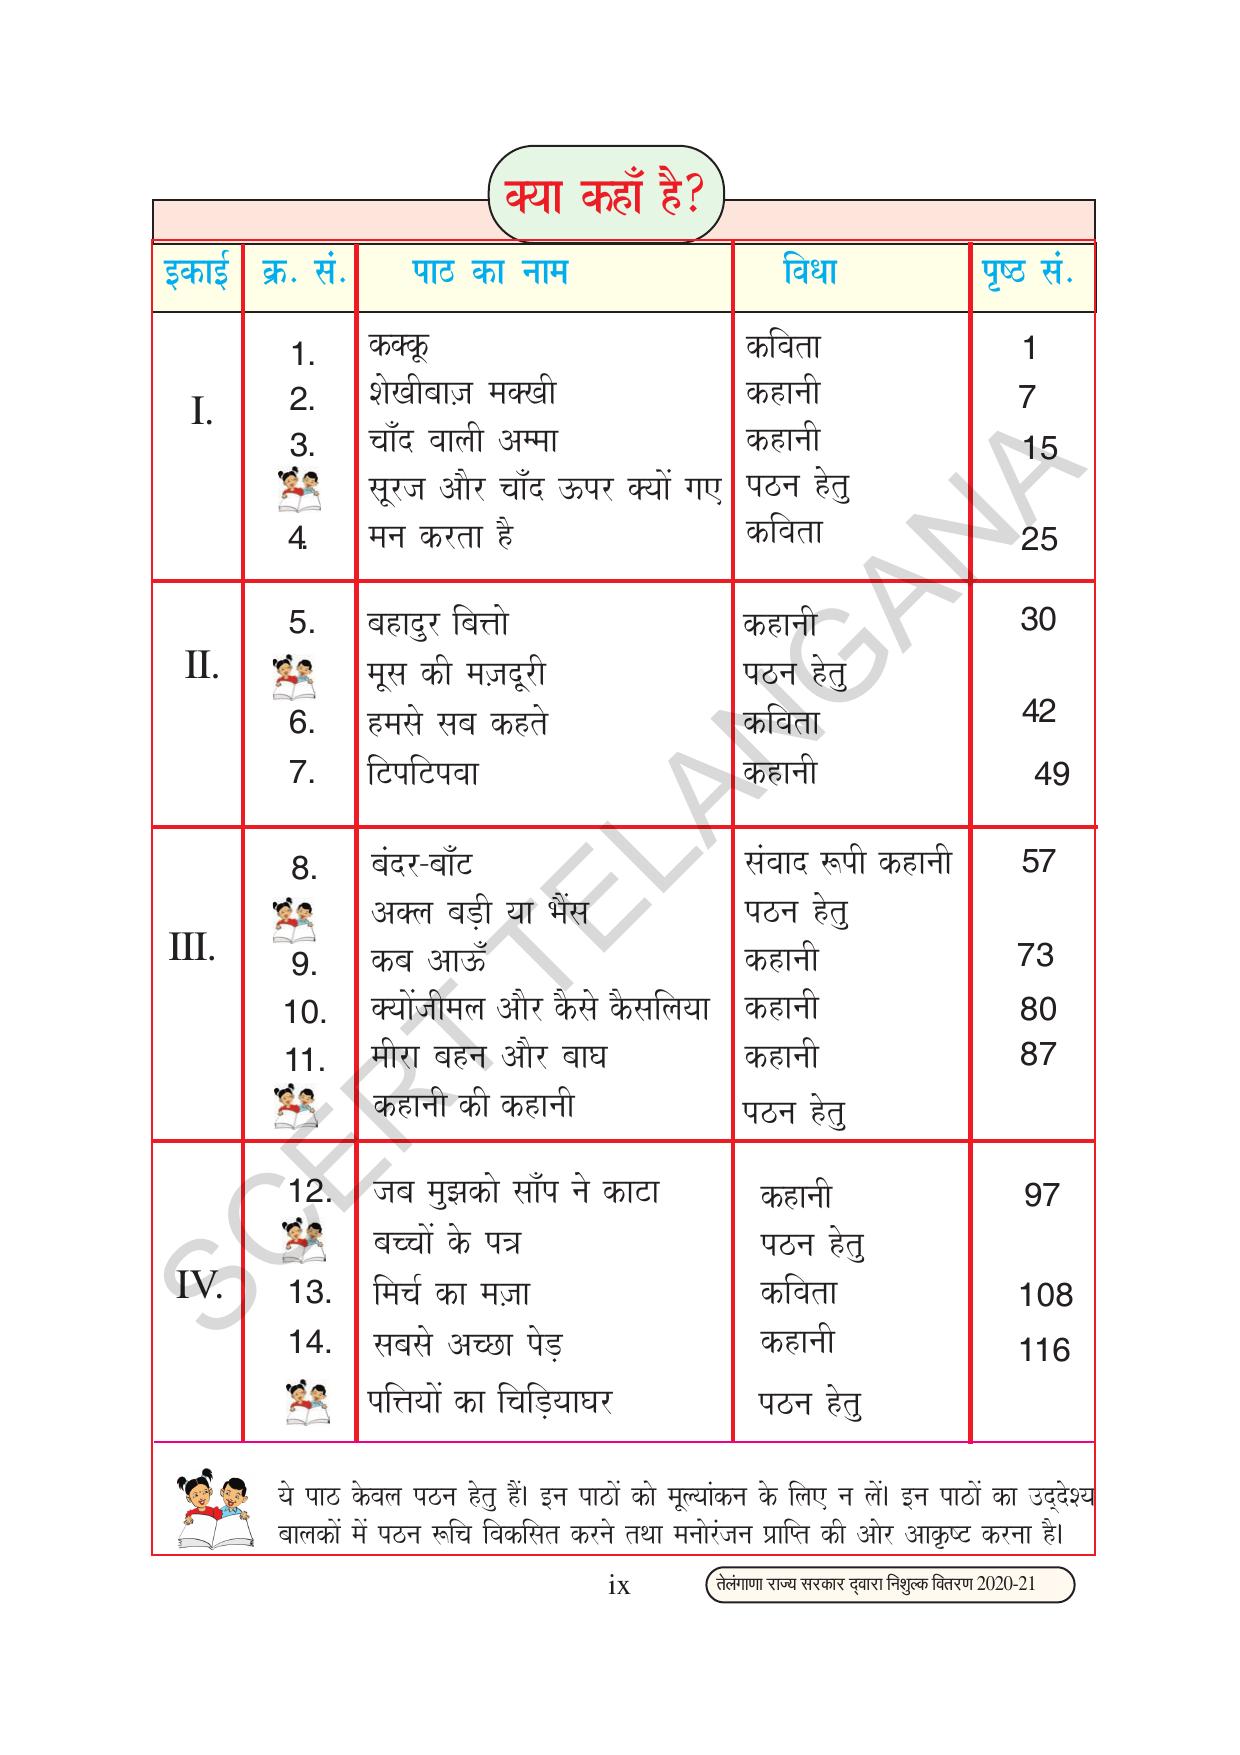 क्या कहाँ है?
इकाई क्र. सं. पाठ का नाम विधा पृष्ठ सं.
I.
1. कक्कू कविता 1
2. शेखीबाज़ मक्खी कहानी 7
3. चाँद वाली अम्मा कहानी 15
सूरज और चाँद ऊपर क्यों गए पठन हेतु
4. मन करता है कविता 25
II.
5. बहादुर बित्तो कहानी 30
मूस की मज़दूरी पठन हेतु
6. हमसे सब कहते कविता 42
7. टिपटिपवा कहानी 49
III.
8. बंदर-बाँट संवाद रूपी कहानी 57
अक्ल बड़ी या भैंस पठन हेतु
9. कब आऊँ कहानी 73
10. क्योंजीमल और कैसे कैसलिया कहानी 80
11. मीरा बहन और बाघ कहानी 87
कहानी की कहानी पठन हेतु
IV.
12. जब मुझको साँप ने काटा कहानी 97
बच्चों के पत्र पठन हेतु
13. मिर्च का मज़ा कविता 108
14. सबसे अच्छा पेड़ कहानी 116
पत्तियों का चिड़ियाघर पठन हेतु
ये पाठ केवल पठन हेतु हैं। इन पाठों को मूल्यांकन के लिए न लें। इन पाठों का उद्देश्य
बालकों में पठन रूचि विकसित करने तथा मनोरंजन प्राप्ति की ओर आकृष्ट करना है।
ix
तेलंगाणा राज्य सरकार द्वारा निशुल्क वितरण 2020-21
SCERT TELANGANA